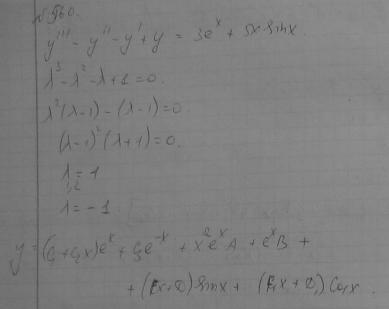 № 560.
y''' - y'' - y' + y = 3eˣ + 5x sin x.
λ³ - λ² - λ + 1 = 0.
λ²(λ-1) - (λ-1) = 0
(λ-1)²(λ+1) = 0.
λ₁,₂ = 1
λ = -1
y = (C₁ + C₂x)eˣ + C₃e⁻ˣ + x²eˣA + eˣB +
+ (Ex+D) sin x + (E₁x + D₁) Cos x.